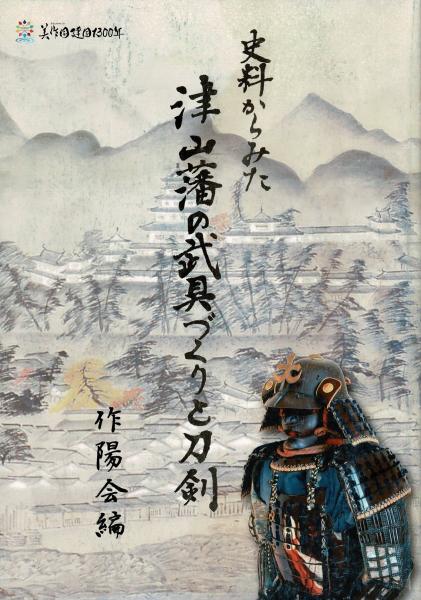 美作国建国1300年
史料からみた
津山藩の武具づくりと刀剣
作陽会編